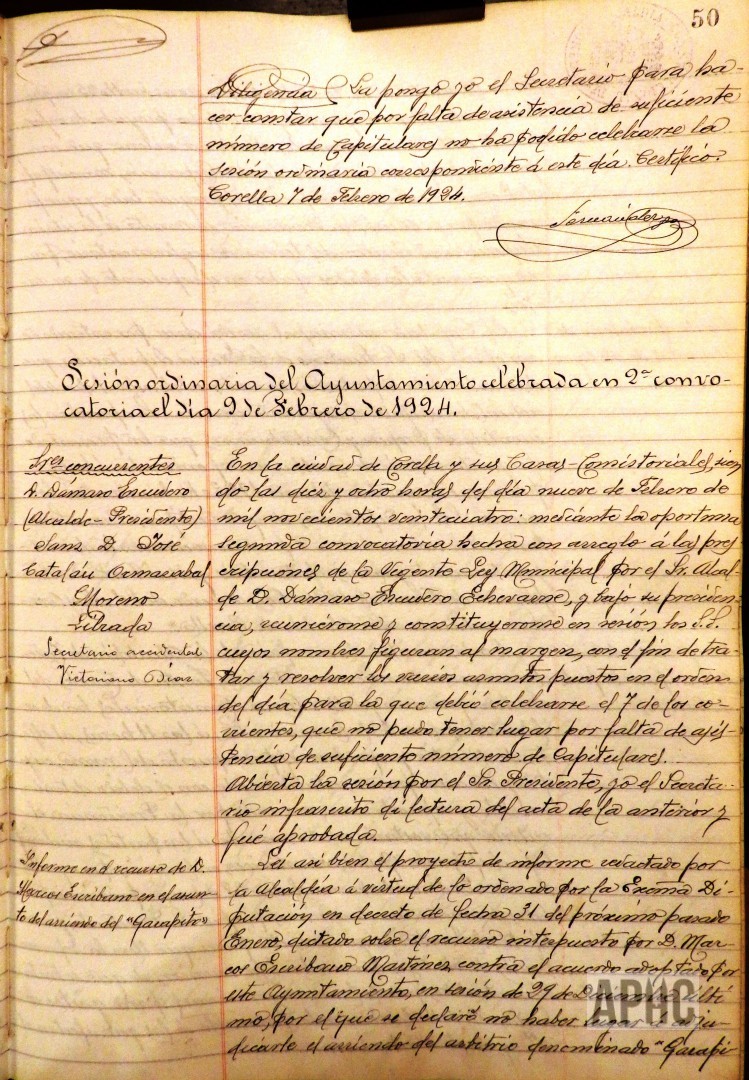 50
Diligencia La pongo yo el Secretario para ha-
cer constar que por falta de asistencia de suficiente
número de Capitulares no ha podido celebrarse la
sesión ordinaria correspondiente á este día. Certifico.
Corella 7 de Febrero de 1924.
Sesión ordinaria del Ayuntamiento celebrada en 2ª convo-
catoria el día 9 de Febrero de 1924.
Sres concurrentes
D. Dámaso Escudero
(Alcalde-Presidente)
Sanz D. José
Catalán Ormazabal
Moreno
Librada
Secretario accidental
Victoriano Díaz
En la ciudad de Corella y sus Casas-Consistoriales, sien
do las diez y ocho horas del día nueve de Febrero de
mil novecientos veinticuatro: mediante la oportuna
segunda convocatoria hecha con arreglo á las pres
cripciones de la vigente Ley Municipal por el Sr. Alcal-
de D. Dámaso Escudero Echevarne, y bajo su presiden-
cia, reuniéronse y constituyeronse en sesión los S.S.
cuyos nombres figuran al margen, con el fin de tra-
tar y resolver los varios asuntos puestos en el orden
del día para la que debió celebrarse el 7 de los co-
rrientes, que no pudo tener lugar por falta de asis-
tencia de suficiente número de Capitulares.
Abierta la sesión por el Sr. Presidente, yo el Secreta-
rio infrascrito di lectura del acta de la anterior y
fué aprobada.
Informe en el recurso de D.
Marcos Escribano en el asun-
to del arriendo del "Garapito"
Leí asi bien el proyecto de informe redactado por
la Alcaldía á virtud de lo ordenado por la Excma Di-
putación en decreto de fecha 31 del próximo pasado
Enero, dictado sobre el recurso interpuesto por D. Mar-
cos Escribano Martínez contra el acuerdo adoptado por
este Ayuntamiento, en sesión de 29 de Diciembre últi
mo, por el que se declaró no haber lugar á adju-
dicarle el arriendo del arbitrio denominado "Garapi-
APHC